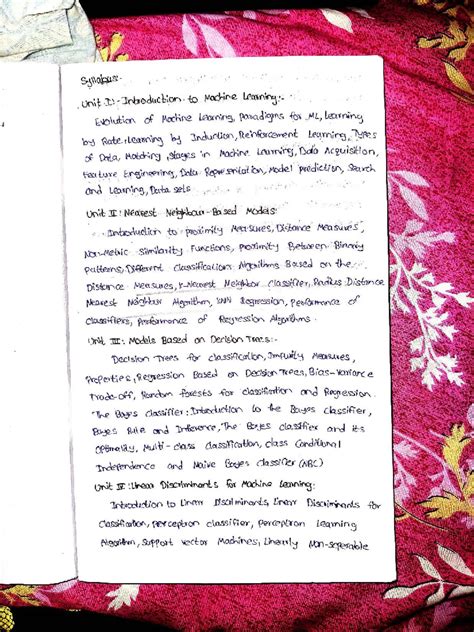 Syllabus:-
Unit I: Introduction to Machine Learning:-
Evolution of Machine Learning, Paradigms for ML, Learning
by Rote, Learning by Induction, Reinforcement Learning, Types
of Data, Matching, Stages in Machine Learning, Data Acquisition,
Feature Engineering, Data Representation, Model prediction, Search
and Learning, Data sets
Unit II: Nearest Neighbour-Based Models:
Introduction to proximity Measures, Distance Measures,
Non-Metric Similarity Functions, Proximity Between Binary
patterns, Different Classification Algorithms Based on the
Distance Measures, K-Nearest Neighbor Classifier, Radius Distance
Nearest Neighbor Algorithm, KNN Regression, Performance of
Classifiers, Performance of Regression Algorithms.
Unit III: Models Based on Decision Trees:-
Decision Trees for classification, Impurity Measures,
Properties, Regression Based on Decision Trees, Bias-variance
Trade-off, Random forests for classification and Regression.
The Bayes classifier: Introduction to the Bayes classifier,
Bayes Rule and Inference, The Bayes classifier and its
Optimality, Multi-class classification, class Conditional
Independence and Naive Bayes Classifier (NBC)
Unit IV: Linear Discriminants for Machine Learning:
Introduction to Linear Discriminants, Linear Discriminants for
Classification, perceptron classifier, perceptron Learning
Algorithm, Support vector Machines, Linearly Non-seperable